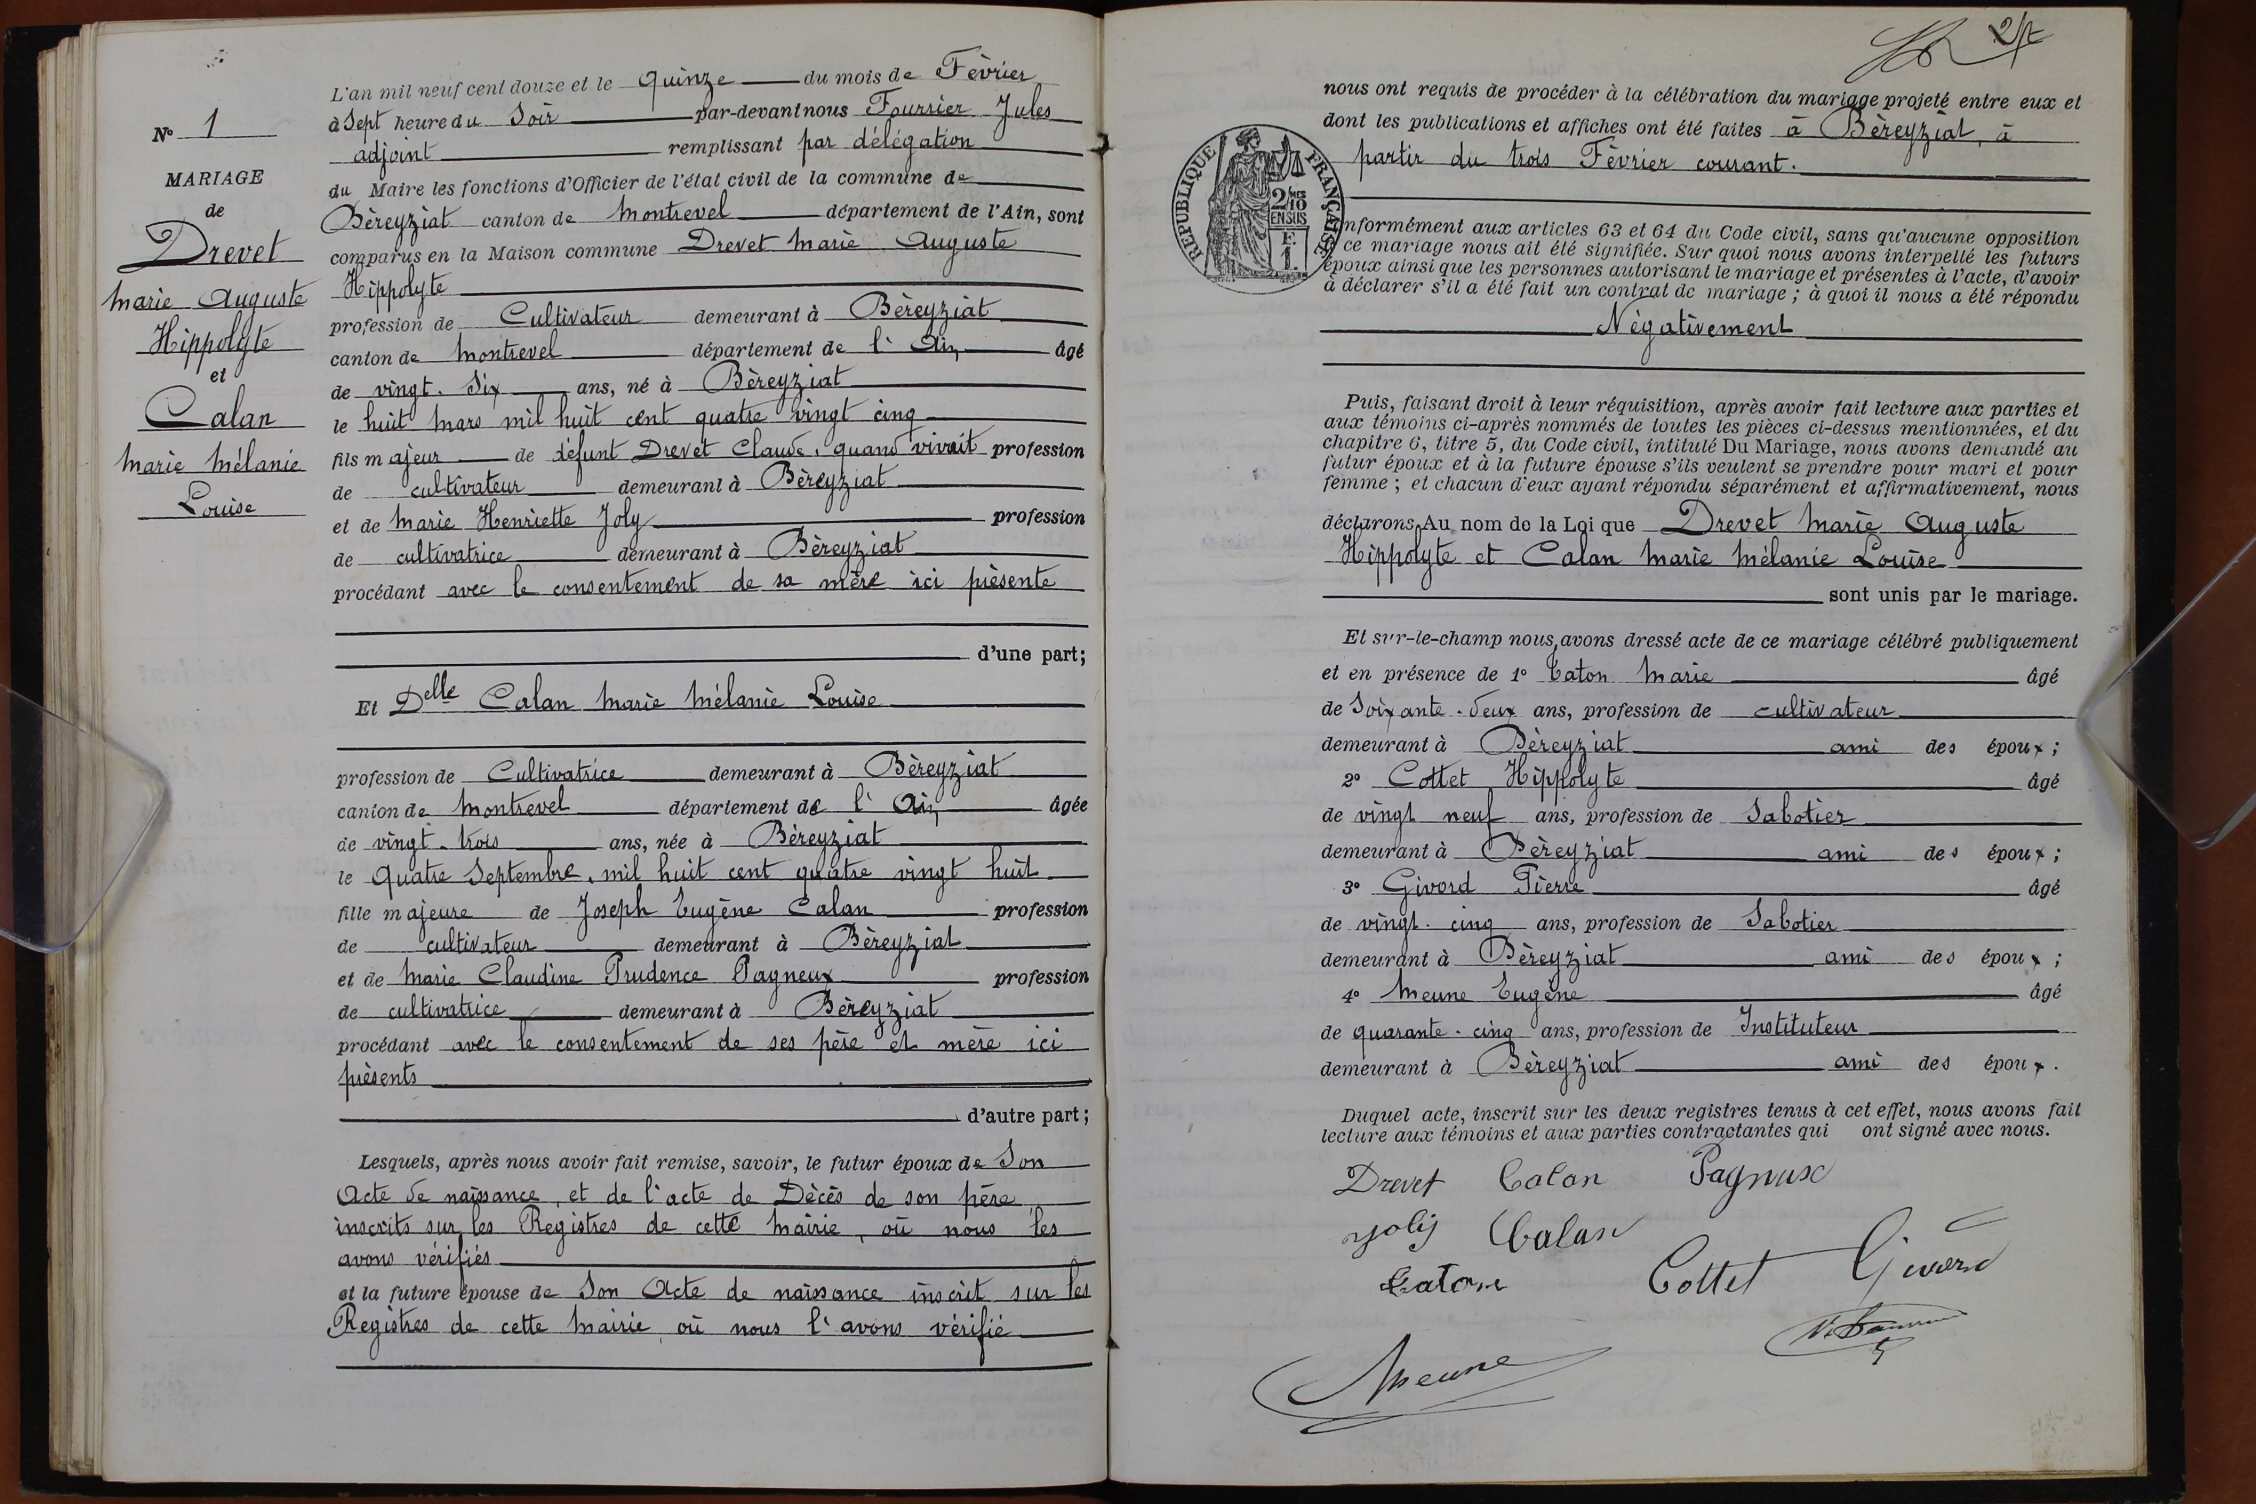 N° 1
MARIAGE
de
Drevet
Marie Auguste
Hippolyte
et
Calan
Marie Mélanie
Louise
L'an mil neuf cent douze et le quinze du mois de Fèvrier
à Sept heure du Soir par-devant nous Fournier Jules
adjoint remplissant par délégation
du Maire les fonctions d'Officier de l'état civil de la commune de
Bèreyziat canton de Montrevel département de l'Ain, sont
comparus en la Maison commune Drevet Marie Auguste
Hippolyte
profession de Cultivateur demeurant à Bèreyziat
canton de Montrevel département de l'Ain âgé
de vingt-six ans, né à Bèreyziat
le huit Mars mil huit cent quatre vingt cinq
fils majeur de défunt Drevet Claude, quand vivait profession
de cultivateur demeurant à Bèreyziat
et de Marie Henriette Joly profession
de cultivatrice demeurant à Bèreyziat
procédant avec le consentement de sa mère ici présente
d'une part;
Et Delle Calan Marie Mélanie Louise
profession de Cultivatrice demeurant à Bèreyziat
canton de Montrevel département de l'Ain âgée
de vingt-trois ans, née à Bèreyziat
le Quatre Septembre, mil huit cent quatre vingt huit
fille majeure de Joseph Eugène Calan profession
de cultivateur demeurant à Bèreyziat
et de Marie Claudine Prudence Pagneux profession
de cultivatrice demeurant à Bèreyziat
procédant avec le consentement de ses père et mère ici
présents
d'autre part;
Lesquels, après nous avoir fait remise, savoir, le futur époux de Son
Acte de naissance, et de l'acte de Dècès de son père,
inscrits sur les Registres de cette Mairie, où nous les
avons vérifiés
et la future épouse de Son Acte de naissance inscrit sur les
Registres de cette Mairie, où nous l'avons vérifié
2
nous ont requis de procéder à la célébration du mariage projeté entre eux et
dont les publications et affiches ont été faites à Bèreyziat, à
partir du trois Fèvrier courant.
REPUBLIQUE FRANÇAISE
2/10 MES
EN SUS
F.
1.
nformément aux articles 63 et 64 du Code civil, sans qu'aucune opposition
ce mariage nous ait été signifiée. Sur quoi nous avons interpellé les futurs
époux ainsi que les personnes autorisant le mariage et présentes à l'acte, d'avoir
à déclarer s'il a été fait un contrat de mariage; à quoi il nous a été répondu
Nègativement
Puis, faisant droit à leur réquisition, après avoir fait lecture aux parties et
aux témoins ci-après nommés de toutes les pièces ci-dessus mentionnées, et du
chapitre 6, titre 5, du Code civil, intitulé Du Mariage, nous avons demandé au
futur époux et à la future épouse s'ils veulent se prendre pour mari et pour
femme; et chacun d'eux ayant répondu séparément et affirmativement, nous
déclarons Au nom de la Loi que Drevet Marie Auguste
Hippolyte et Calan Marie Mélanie Louise
sont unis par le mariage.
Et sur-le-champ nous avons dressé acte de ce mariage célébré publiquement
et en présence de 1° Caton Marie âgé
de Soixante-deux ans, profession de cultivateur
demeurant à Bèreyziat ami des époux;
2° Cottet Hippolyte âgé
de vingt neuf ans, profession de Sabotier
demeurant à Bèreyziat ami des époux;
3° Givord Pierre âgé
de vingt-cinq ans, profession de Sabotier
demeurant à Bèreyziat ami des époux;
4° Meune Eugène âgé
de quarante-cinq ans, profession de Instituteur
demeurant à Bèreyziat ami des époux.
Duquel acte, inscrit sur les deux registres tenus à cet effet, nous avons fait
lecture aux témoins et aux parties contractantes qui ont signé avec nous.
Drevet Calan Pagneux
Joly Calan
Caton Cottet Givord
Meune